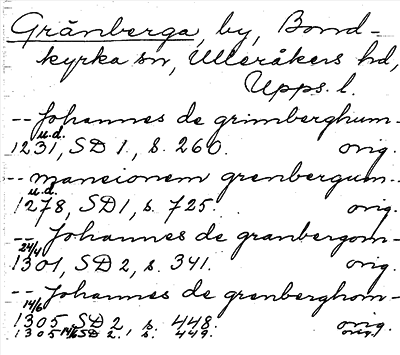 Grånberga, by, Bond-
kyrka sn, Ulleråkers hd,
Upps. l.
-- Johannes de grimberghum--
u.d.
1231, SD 1, s. 260. orig.
-- mansionem grenbergum--
u.d.
1278, SD 1, s. 725. orig.
-- Johannes de granbergom--
24/4
1301, SD 2, s. 341. orig.
-- Johannes de grenberghom--
14/6
1305 SD 2, s. 448. orig.
1305 14/6 SD 2, s. 449. orig.